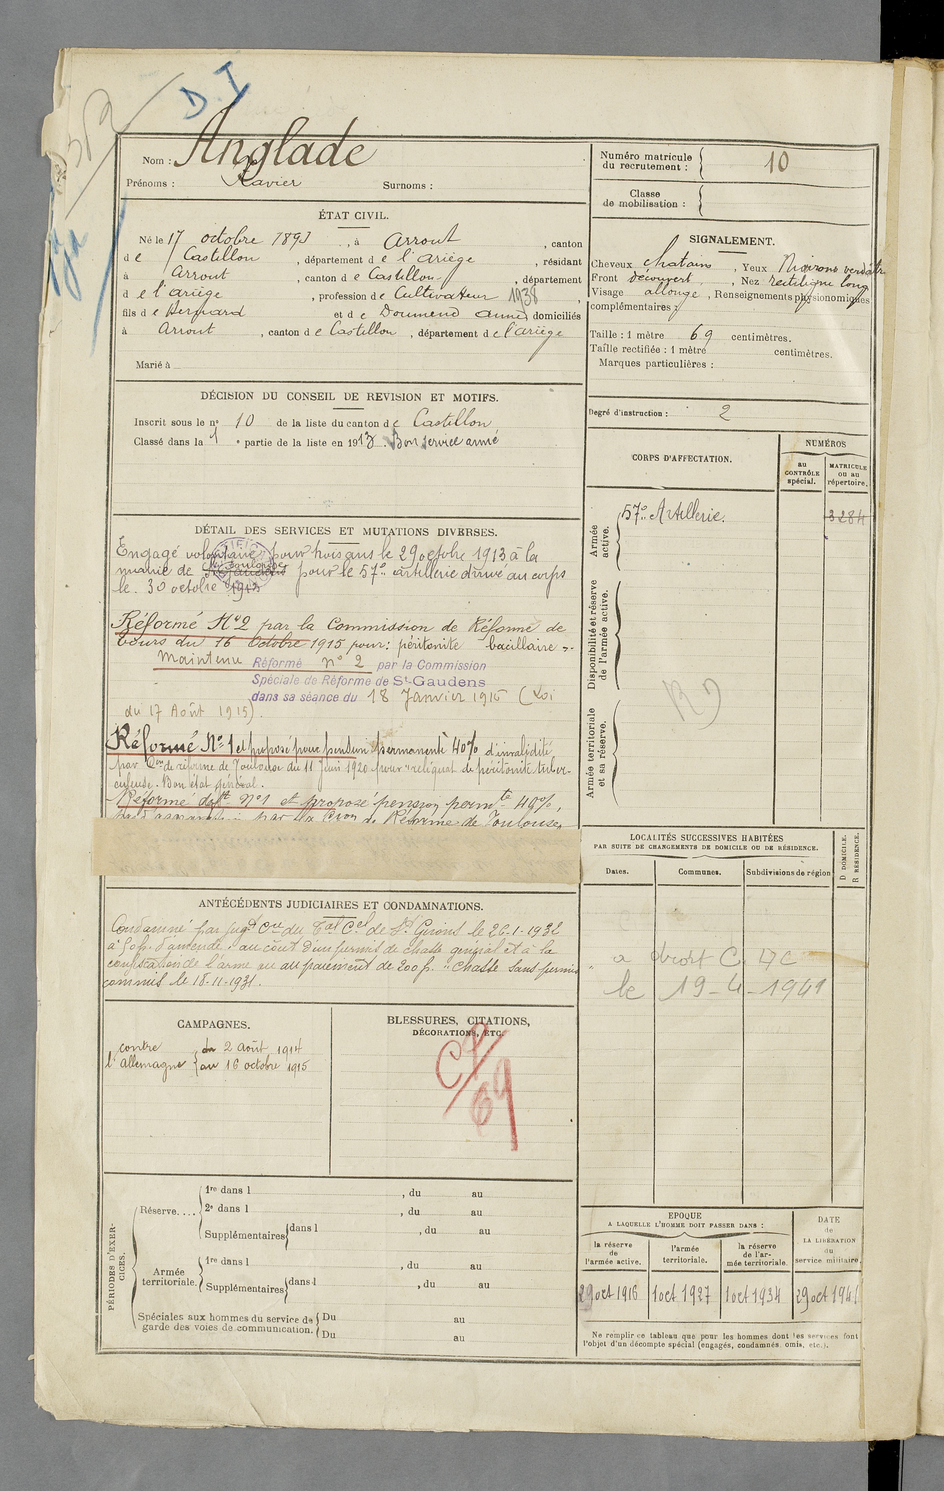 D.I
Nom : Anglade
Prénoms : Xavier Surnoms :
ÉTAT CIVIL.
Né le 17 octobre 1893, à Arrout, canton
de Castillon, département de l'Ariège, résidant
à Arrout, canton de Castillon, département
de l'ariège, profession de Cultivateur 1938
fils de Bernard et de Doumenc anne, domiciliés
à Arrout, canton de Castillon, département de l'ariège
Marié à
DÉCISION DU CONSEIL DE REVISION ET MOTIFS.
Inscrit sous le n° 10 de la liste du canton de Castillon
Classé dans la 1e partie de la liste en 1913. Bon service armé
DÉTAIL DES SERVICES ET MUTATIONS DIVERSES.
Engagé volontaire pour trois ans le 29 octobre 1913 à la
mairie de Toulouse pour le 57e artillerie arrivé au corps
le 30 octobre 1913
Réformé N°2 par la Commission de Réforme de
Tours du 16 Octobre 1915 pour: péritonite bacillaire ".
Maintenu Réformé n° 2 par la Commission
Spéciale de Réforme de St-Gaudens
dans sa séance du 18 Janvier 1916 (Loi
du 17 Août 1915).
Réformé N° 1 et proposé pour pension permanente 40% d'invalidité
par Con de réforme de Toulouse du 11 Juin 1920 pour "reliquat de péritonite tuber-
culeuse. Bon état général.
Réformé deft n°1 et proposé pension permte 40%,
par la Cion de Réforme de Toulouse,
ANTÉCÉDENTS JUDICIAIRES ET CONDAMNATIONS.
Condamné par jugt Cre du Tal Cel de St Girons le 26-1-1932
à 50 fr. d'amende, au coût d'un permis de chasse général et à la
confiscation de l'arme ou au paiement de 200 f. "Chasse sans permis
commis le 18-11-1931.
CAMPAGNES.
contre l'allemagne
du 2 août 1914
au 16 octobre 1915
BLESSURES, CITATIONS,
DÉCORATIONS, ETC.
CP
69
PÉRIODES D'EXERCICES.
Réserve....
1re dans l , du au
2e dans l , du au
Supplémentaires dans l , du au
Armée territoriale.
1re dans l , du au
Supplémentaires dans l , du au
Spéciales aux hommes du service de garde des voies de communication.
Du au
Du au
Numéro matricule du recrutement : 10
Classe de mobilisation :
SIGNALEMENT.
Cheveux chatain, Yeux Marrons verdâtre
Front découvert, Nez rectiligne long
Visage allongé, Renseignements physionomiques
complémentaires :
Taille : 1 mètre 69 centimètres.
Taille rectifiée : 1 mètre centimètres.
Marques particulières :
Degré d'instruction : 2
CORPS D'AFFECTATION.
NUMÉROS
au CONTRÔLE spécial.
MATRICULE ou au répertoire.
Armée active.
57e Artillerie.
3284
Disponibilité et réserve de l'armée active.
Armée territoriale et sa réserve.
LOCALITÉS SUCCESSIVES HABITÉES
PAR SUITE DE CHANGEMENTS DE DOMICILE OU DE RÉSIDENCE.
Dates. Communes. Subdivisions de région
D DOMICILE.
R RÉSIDENCE.
a droit C.
le 19-4-1941
EPOQUE
A LAQUELLE L'HOMME DOIT PASSER DANS :
la réserve de l'armée active.
l'armée territoriale.
la réserve de l'armée territoriale.
DATE de LA LIBÉRATION du service militaire.
29 oct 1916 1 oct 1927 1 oct 1934 29 oct 1941
Ne remplir ce tableau que pour les hommes dont les services font
l'objet d'un décompte spécial (engagés, condamnés, omis, etc.).